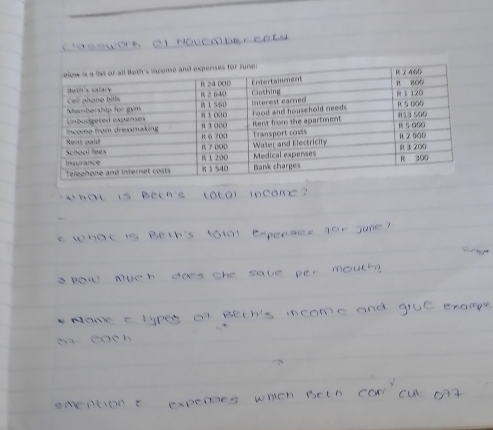 Classwork 01 November 2024
Below is a list of all Beth's income and expenses for June:
Beth's salary R 24 000 Entertainment R 2 460
Cell phone bills R 2 640 Clothing R 800
Membership for gym R 1 560 Interest earned R 1 120
Unbudgeted expenses R 1 000 Food and household needs R 5 000
Income from dressmaking R 3 000 Rent from the apartment R13 500
Rent paid R 6 700 Transport costs R 5 000
School fees R 7 000 Water and Electricity R 2 900
Insurance R 1 200 Medical expenses R 3 200
Telephone and internet costs R 1 540 Bank charges R 300
What is Beth's total income?
What is Beth's total expenses for June?
How much does she save per mouth?
Name 2 types of Beth's income and give example
of each
mention 2 expenses which Beth can cut off